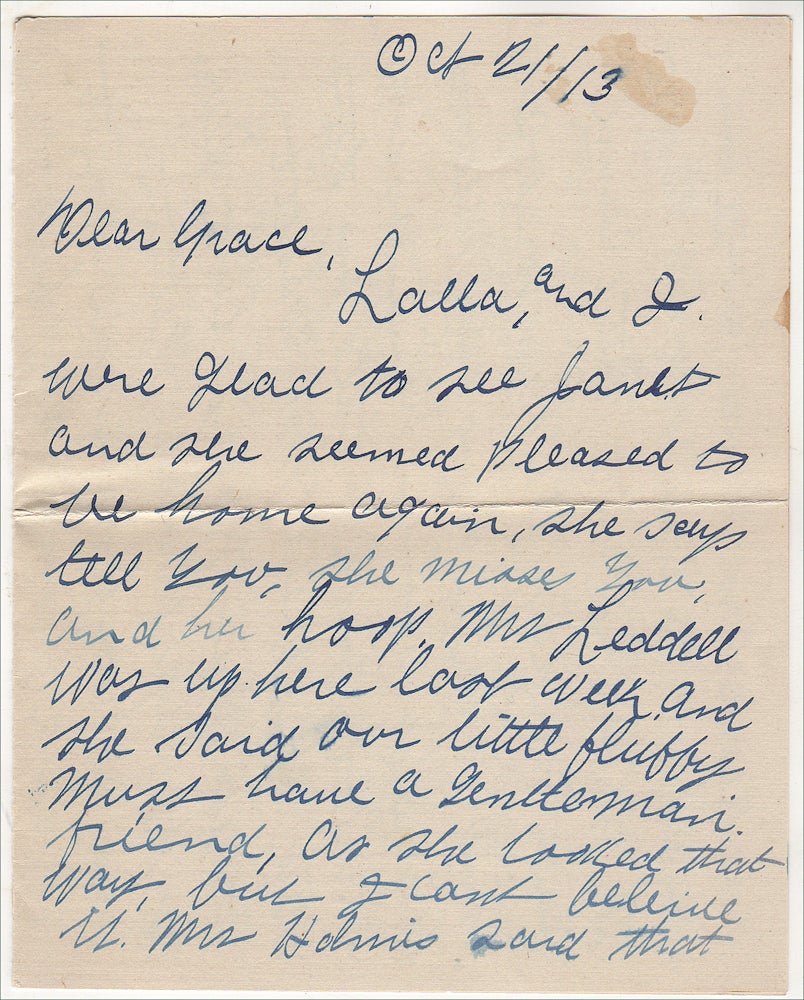 Oct 21/13
Dear Grace,
Lalla, and I.
were glad to see Janet
and she seemed Pleased to
be home again, she says
tell You, she misses You,
and her hoop. Mrs Leddell
was up here last week. and
she said our little fluffy
must have a Gentleman.
friend, as she looked that
way, but I cant beleive
it. Mrs Holmis said that